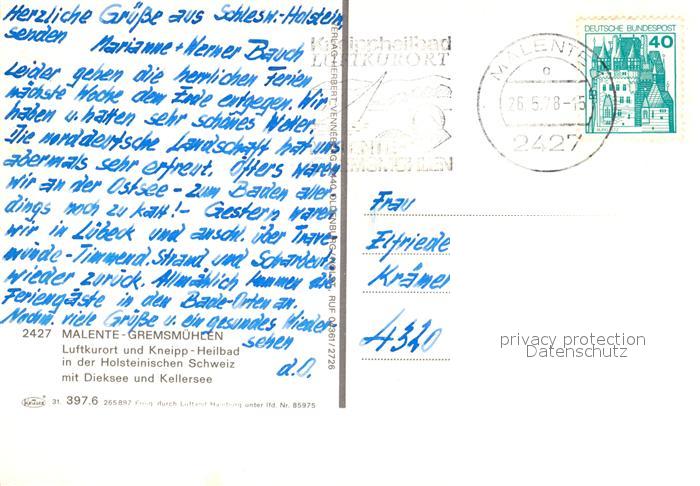 Herzliche Grüße aus Schlesw.-Holstein
senden
Marianne + Werner Bauch
Leider gehen die herrlichen Ferien
nächste Woche dem Ende entgegen. Wir
haben u. hatten sehr schönes Wetter.
Die norddeutsche Landschaft hat uns
abermals sehr erfreut. Öfters waren
wir an der Ostsee - zum Baden aller
dings noch zu kalt! - Gestern waren
wir in Lübeck und anschl. über Trave
münde - Timmend. Strand und Scharbeutz
wieder zurück. Allmählich kommen die
Feriengäste in den Bade-Orten an.
Nochm. viele Grüße u. ein gesundes Wieder
sehen
d.O.
2427 MALENTE-GREMSMÜHLEN
Luftkurort und Kneipp-Heilbad
in der Holsteinischen Schweiz
mit Dieksee und Kellersee
KRÜGER 31. 397.6 265897 Freig. durch Luftamt Hamburg unter lfd. Nr. 85975
VERLAG HERBERT VENNEBERG 2440 OLDENBURG/HOLST. RUF 04361/2726
Kneippheilbad
LUFTKURORT
MALENTE-
GREMSMÜHLEN
MALENTE
26.5.78-15
2427
DEUTSCHE BUNDESPOST
40
BURG ELTZ
Frau
Elfriede
Krämer
4320
privacy protection
Datenschutz